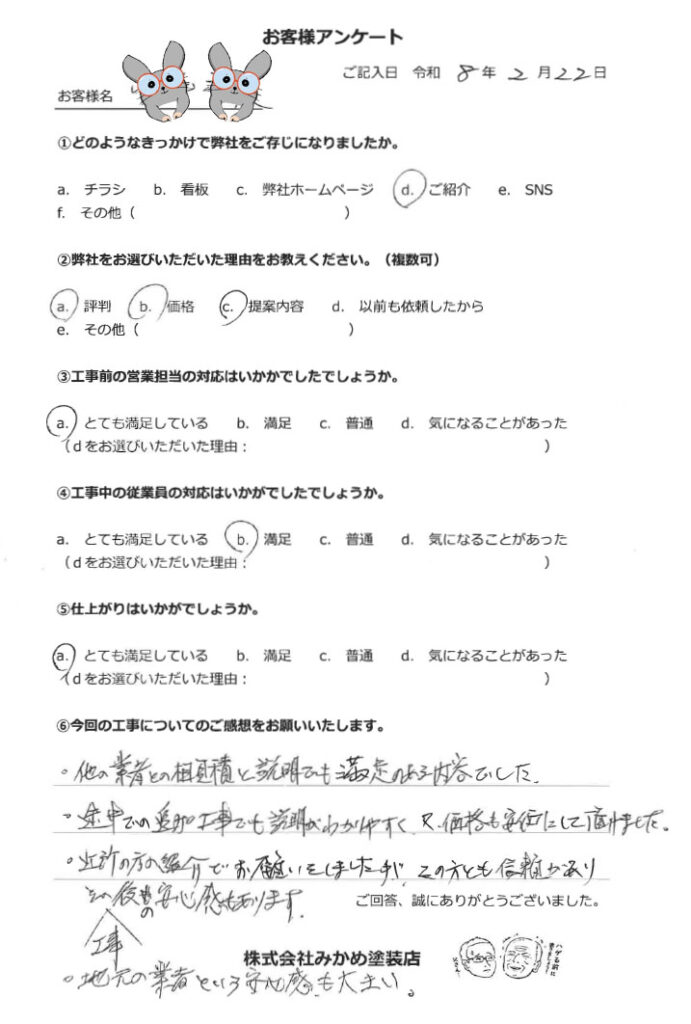 お客様アンケート
ご記入日 令和 8 年 2 月 22 日
お客様名
①どのようなきっかけで弊社をご存じになりましたか。
a. チラシ b. 看板 c. 弊社ホームページ d. ご紹介 e. SNS
f. その他( )
②弊社をお選びいただいた理由をお教えください。(複数可)
a. 評判 b. 価格 c. 提案内容 d. 以前も依頼したから
e. その他( )
③工事前の営業担当の対応はいかかでしたでしょうか。
a. とても満足している b. 満足 c. 普通 d. 気になることがあった
(dをお選びいただいた理由: )
④工事中の従業員の対応はいかがでしたでしょうか。
a. とても満足している b. 満足 c. 普通 d. 気になることがあった
(dをお選びいただいた理由: )
⑤仕上がりはいかがでしょうか。
a. とても満足している b. 満足 c. 普通 d. 気になることがあった
(dをお選びいただいた理由: )
⑥今回の工事についてのご感想をお願いいたします。
・他の業者との相見積と説明でも満足のある内容でした。
・途中での追加工事でも説明がわかりやすく、又、価格も安価にして頂けました。
・近所の方の紹介でお願いをしましたが、この方とも信頼があり
その後の安心感もあります。
ご回答、誠にありがとうございました。
工事
株式会社みかめ塗装店
・地元の業者という安心感も大きい。